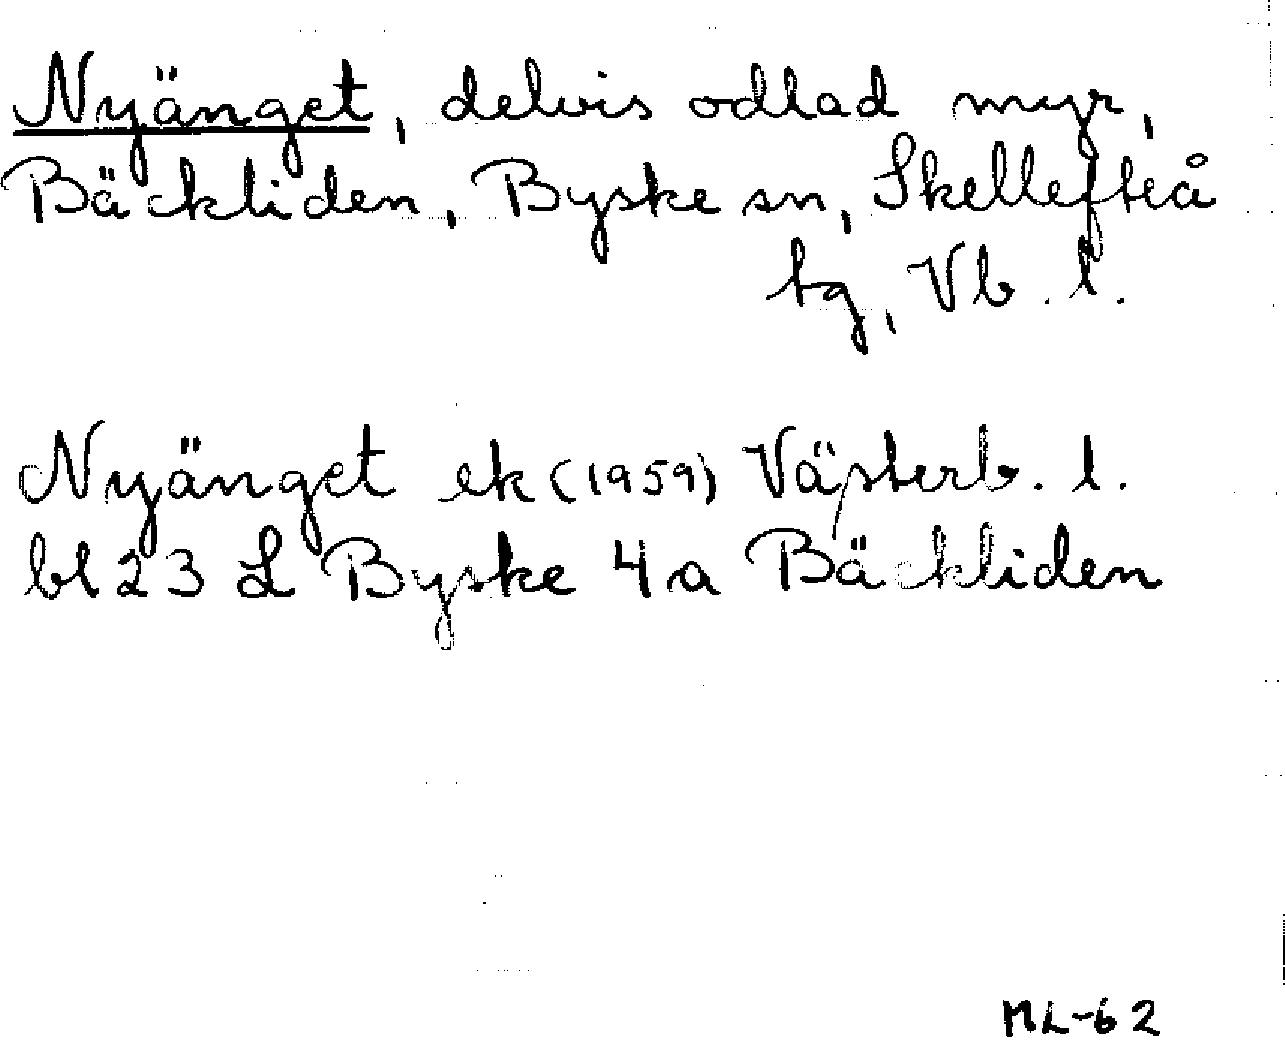 Nyänget, delvis odlad myr,
Bäckliden, Byske sn, Skellefteå
tg, Vb. l.
Nyänget ek (1959) Västerb. l.
bl 23 L Byske 4 a Bäckliden
ML-62